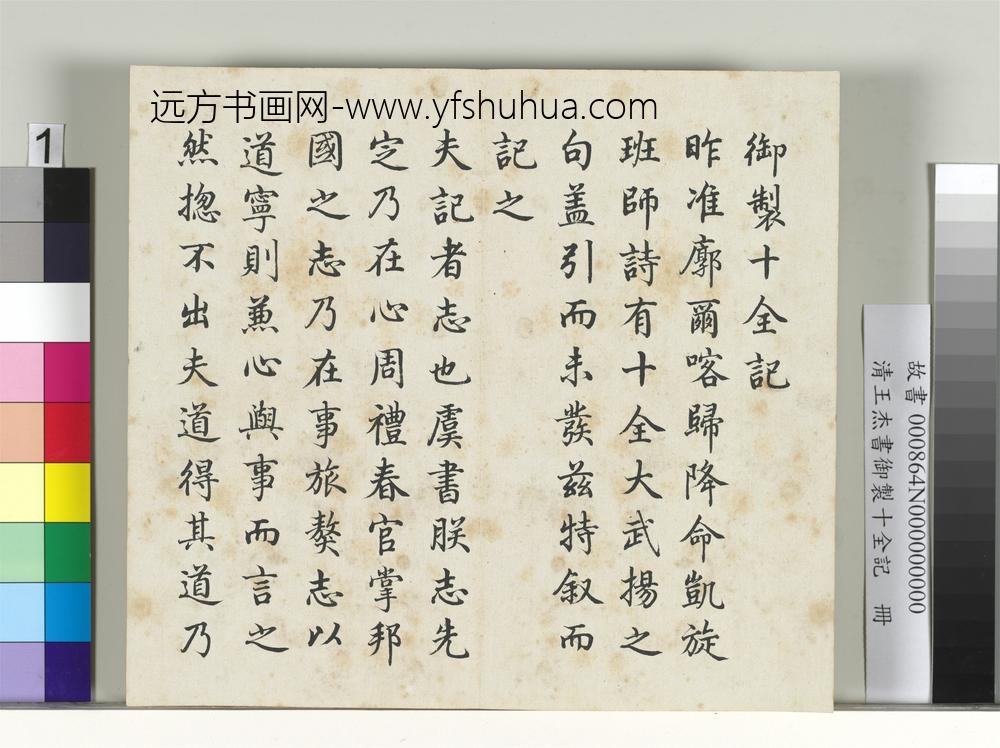 远方书画网-www.yfshuhua.com
御製十全記
昨准廓爾喀歸降命凱旋
班師詩有十全大武揚之
句盖引而未發兹特叙而
記之
夫記者志也虞書朕志先
定乃在心周禮春官掌邦
國之志乃在事旅獒志以
道寧則兼心與事而言之
然揔不出夫道得其道乃
1
故書 000864N000000000
清王杰書御製十全記 冊